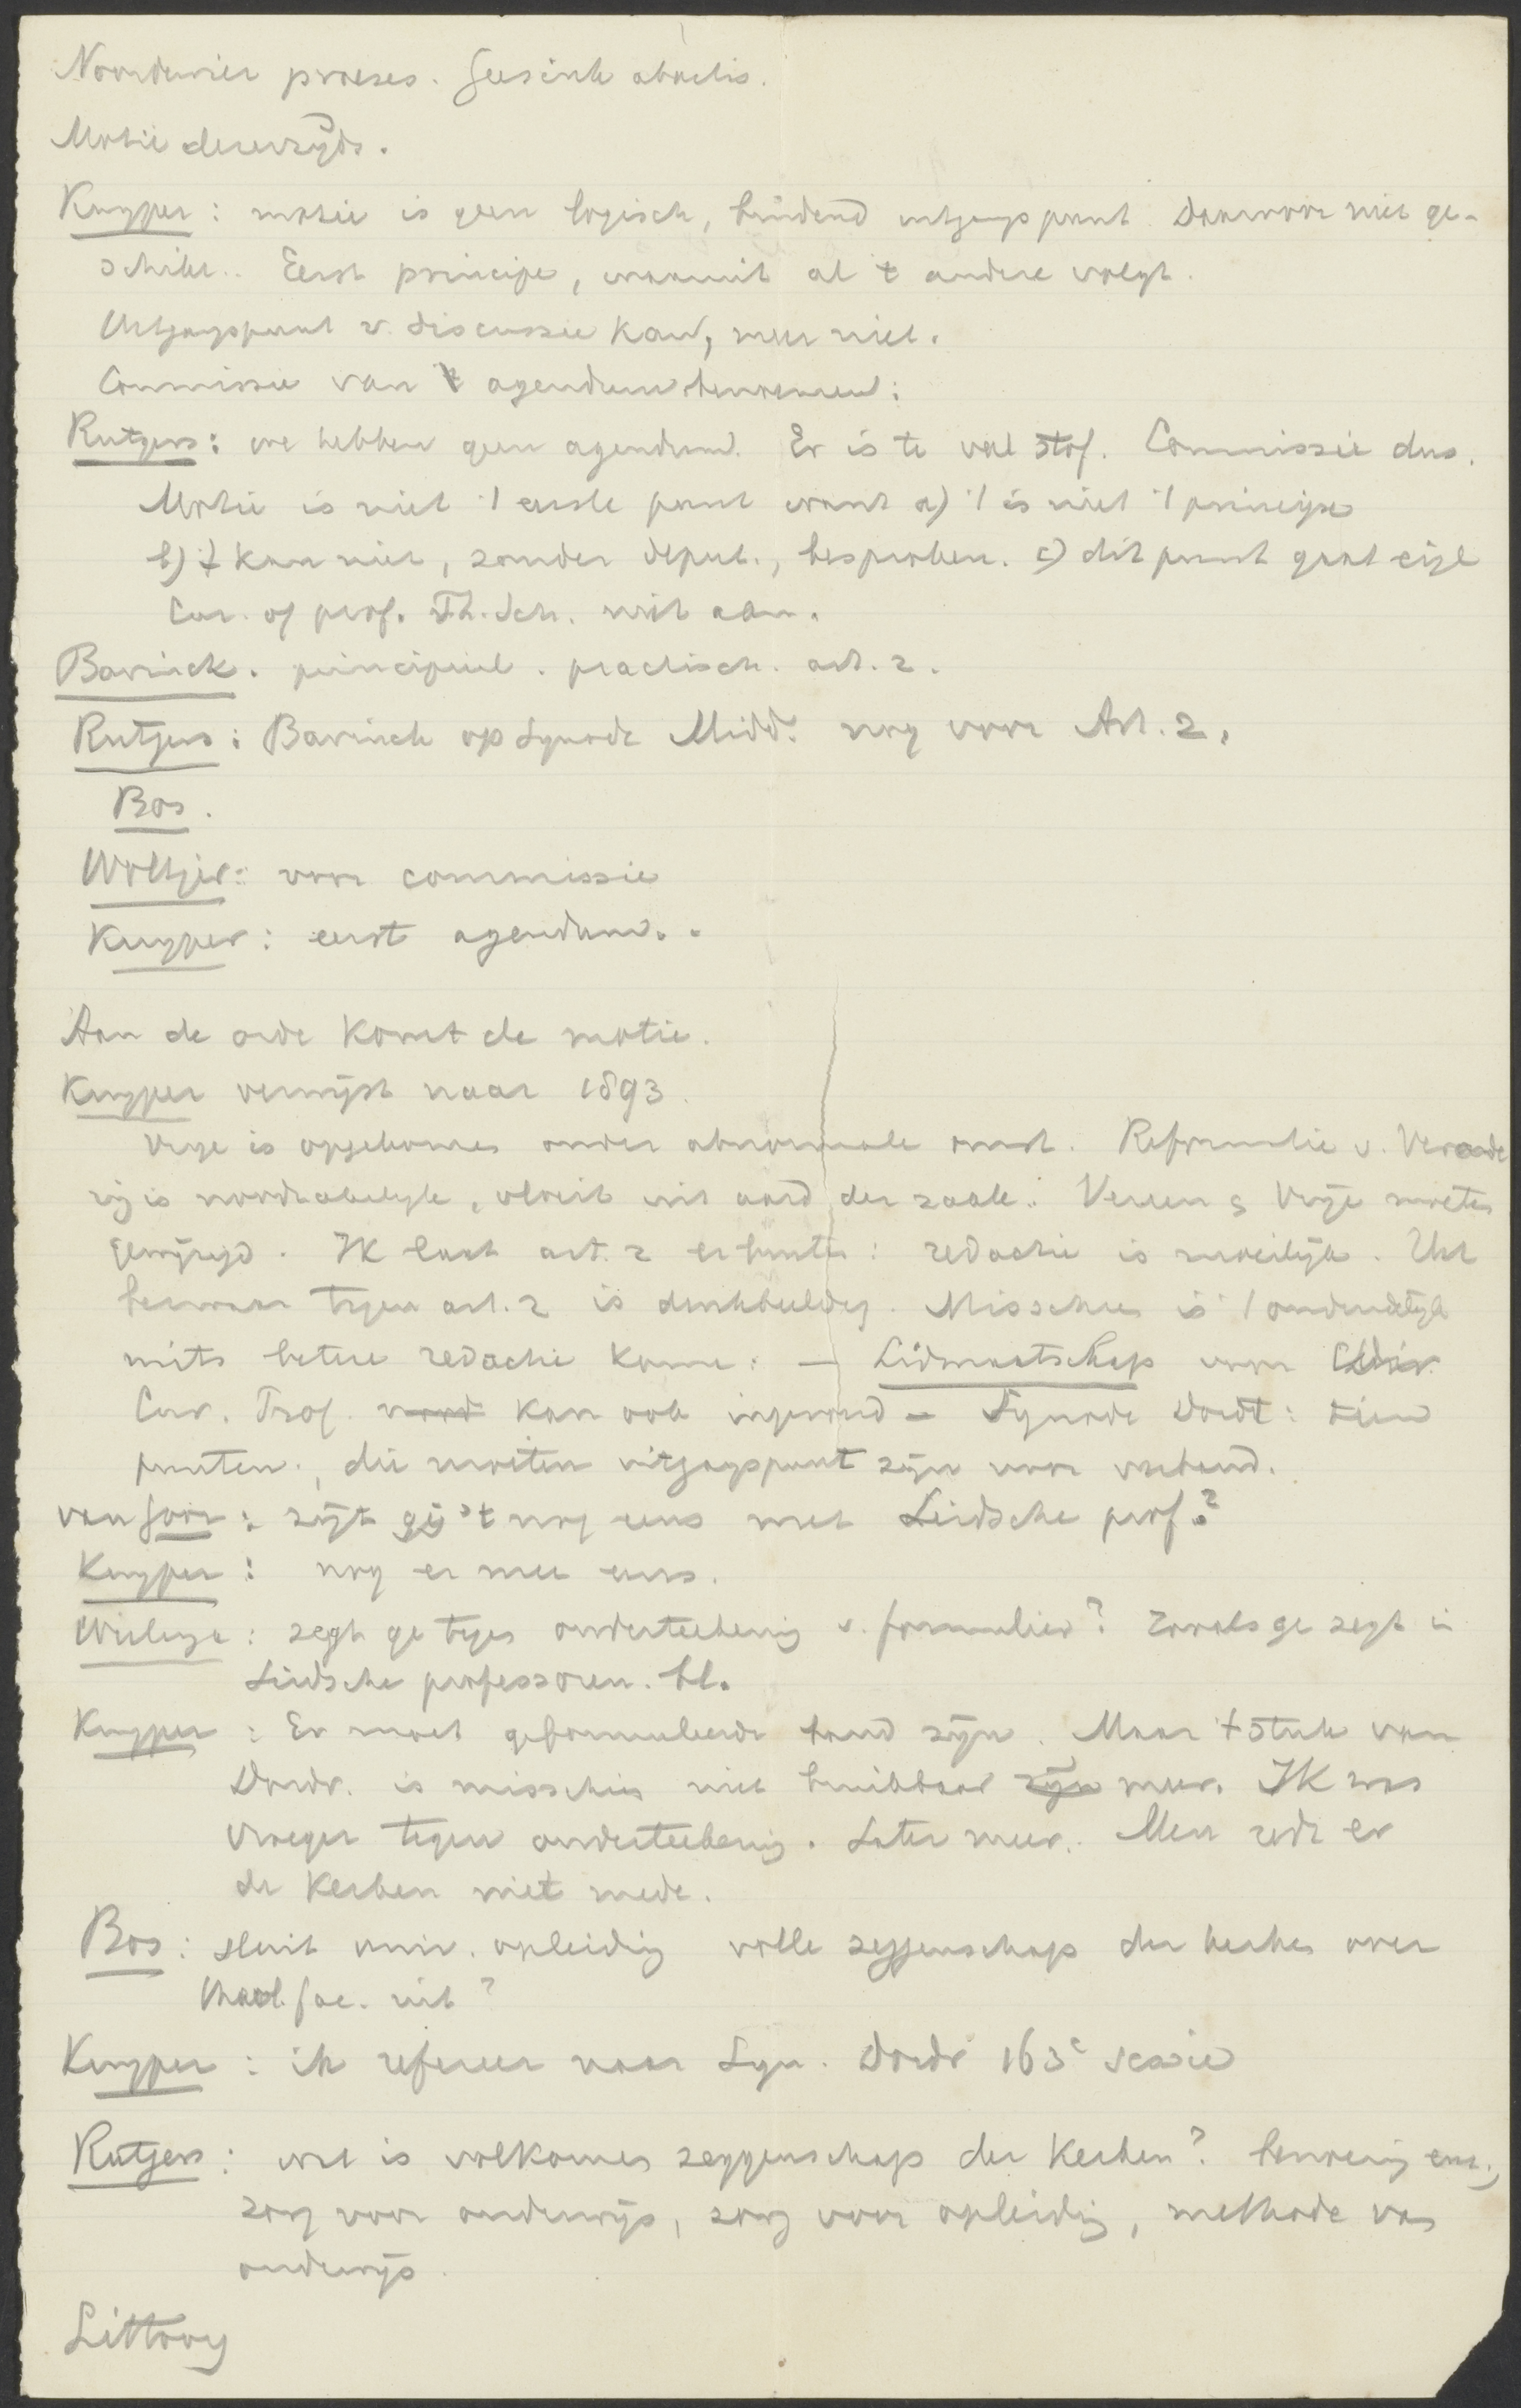 Noordewier praeses. Geesink abactis.
Motie derzijds.
Kuyper: motie is geen logisch, bindend uitgangspunt. Daarvoor niet ge-
schikt. Eerst principe, waaruit al 't andere volgt.
Uitgangspunt v. discussie kan, meer niet.
Commissie van 't agendum benoemen:
Rutgers: we hebben geen agendum. Er is te veel stof. Commissie dus.
Motie is niet 't eerste punt want a) 't is niet 't principe
b) 't kan niet, zonder deput., besproken. c) dit punt gaat eigl
Cur. of prof. Th. Sch. niet aan.
Bavinck. principieel. practisch. art. 2.
Rutgers: Bavinck op Synode Midd. nog voor Art. 2.
Bos.
Woltjer: voor commissie
Kuyper: eerst agendum.
Aan de orde komt de motie.
Kuyper verwijst naar 1893.
Vrije is opgekomen onder abnormale omst. Reformatie v. Verande
ring is noodzakelijk, vloeit uit aard der zaak. Vereen & Vrije moeten
gewijzigd. IK laat art. 2 er buiten: redactie is moeilijk. Het
bezwaar tegen art. 2 is denkbeeldig. Misschien is 't onduidelijk
mits betere redactie kome: — Lidmaatschap voor
Cur. Prof. kan ook ingevoerd — Synode Dordt: tien
punten, die moeten uitgangspunt zijn voor verband.
van Goor: zijt gij 't nog eens met Leidsche prof?
Kuyper: nog er mee eens.
Wielenga: zegt ge tegen onderteekening v. formulier? Zooals ge zegt in
Leidsche professoren. bl.
Kuyper: Er moet geformuleerde band zijn. Maar 't stuk van
Dordr. is misschien niet bruikbaar meer. IK was
vroeger tegen onderteekening. Later meer. Men redt er
de Kerken niet mede.
Bos: sluit univ. opleiding volle zeggenschap der kerken over
theol. fac. uit?
Kuyper: ik refereer naar Syn. Dordr 163e sessie
Rutgers: wat is volkomen zeggenschap der Kerken? benoeming enz.,
zorg voor onderwijs, zorg voor opleiding, methode van
onderwijs.
Littooy